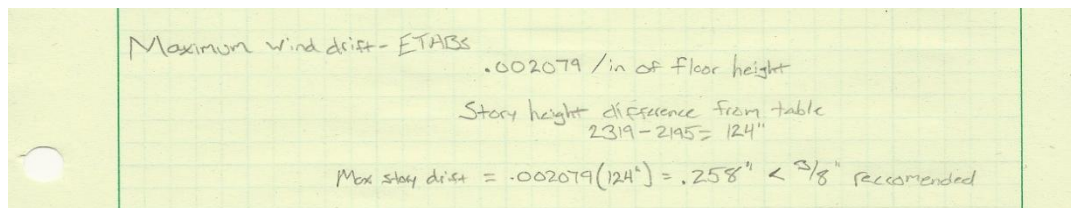 Maximum wind drift - ETABS
.002079 /in of floor height
Story height difference from table
2319 - 2195 = 124"
Max story drift = .002079(124") = .258" < 3/8" reccomended